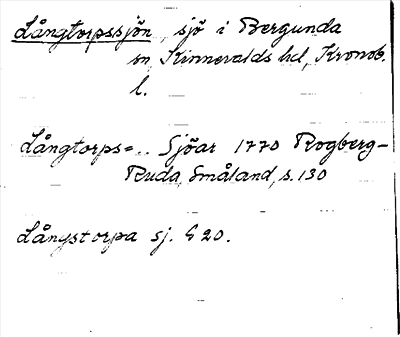 Långtorpssjön, sjö i Bergunda
sn, Kinnevalds hd, Kronob.
l.
Långtorps=.. Sjöar 1770 Rogberg-
Ruda, Småland, s. 130
Långstorpa sj. G 20.